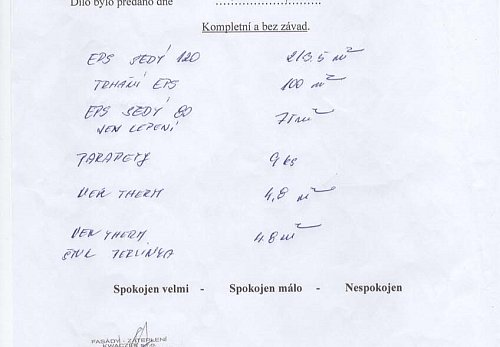 Dílo bylo předáno dne ......:................/..........
Kompletní a bez závad.
EPS ŠEDÝ 120 213.5 m²
TRHÁNÍ EPS 100 m²
EPS ŠEDÝ 80 71 m²
JEN LEPENÍ
PARAPETY 9 ks
VEN THERM 4,8 m²
VEN THERM 4.8 m²
Spokojen velmi - Spokojen málo - Nespokojen
FASÁDY - ZATEPLENÍ